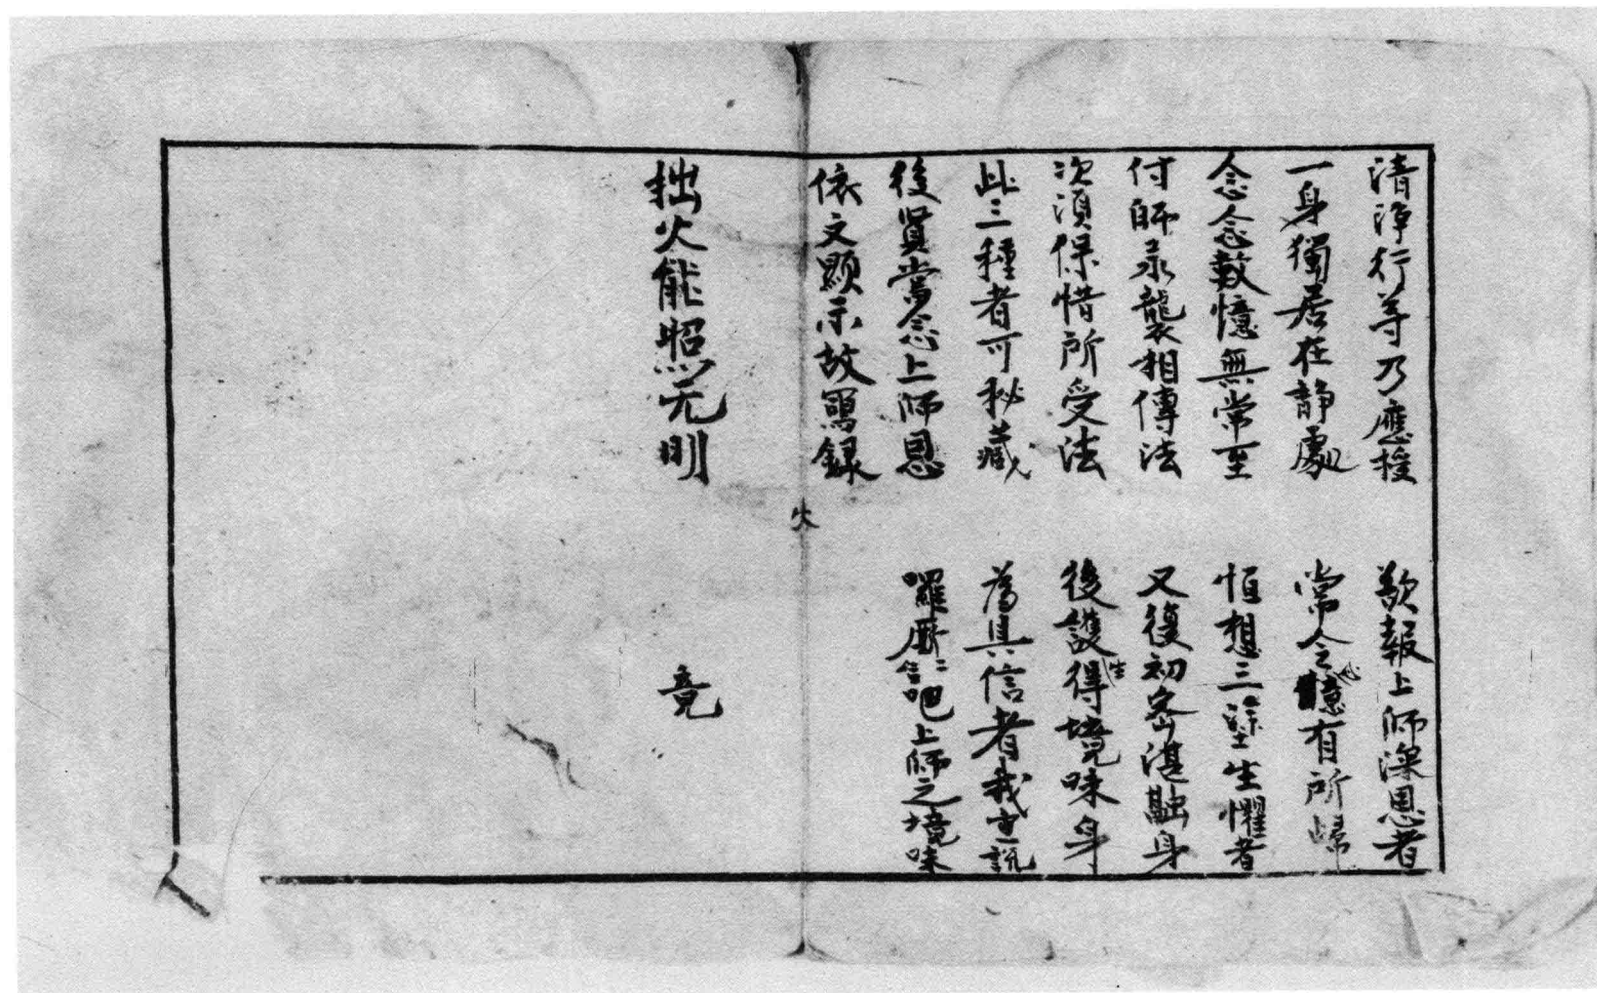 清淨行等乃應授　歓報上師深恩者
一身獨居在静處　常令心憶有所歸
念念數憶無常至　恒想三塗生懼者
付師承襲相傳法　又復初密湛融身
次須保惜所受法　後護得生境味身
此三種者可秘藏　為具信者我方說
後賢當念上師恩　囉厮二合吧上師之境味
依文顯示故寫録
拙火能照无明　竟
火